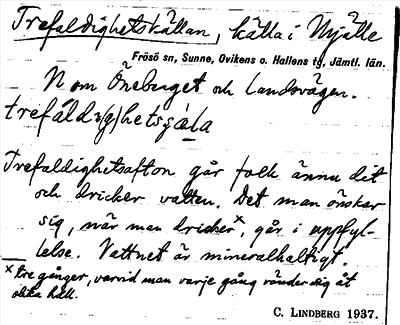 Trefaldighetskällan, källa i Mjälle
Frösö sn, Sunne, Ovikens o. Hallens tg, Jämtl. län.
N om Öneberget och landsvägen.
trefáld
Trefaldighetsafton går folk ännu dit
och dricker vatten. Det man önskar
sig, när man dricker x, går i uppfyl-
lelse. Vattnet är mineralhaltigt.
x tre gånger, varvid man varje gång vänder sig åt
olika håll.
C. LINDBERG 1937.